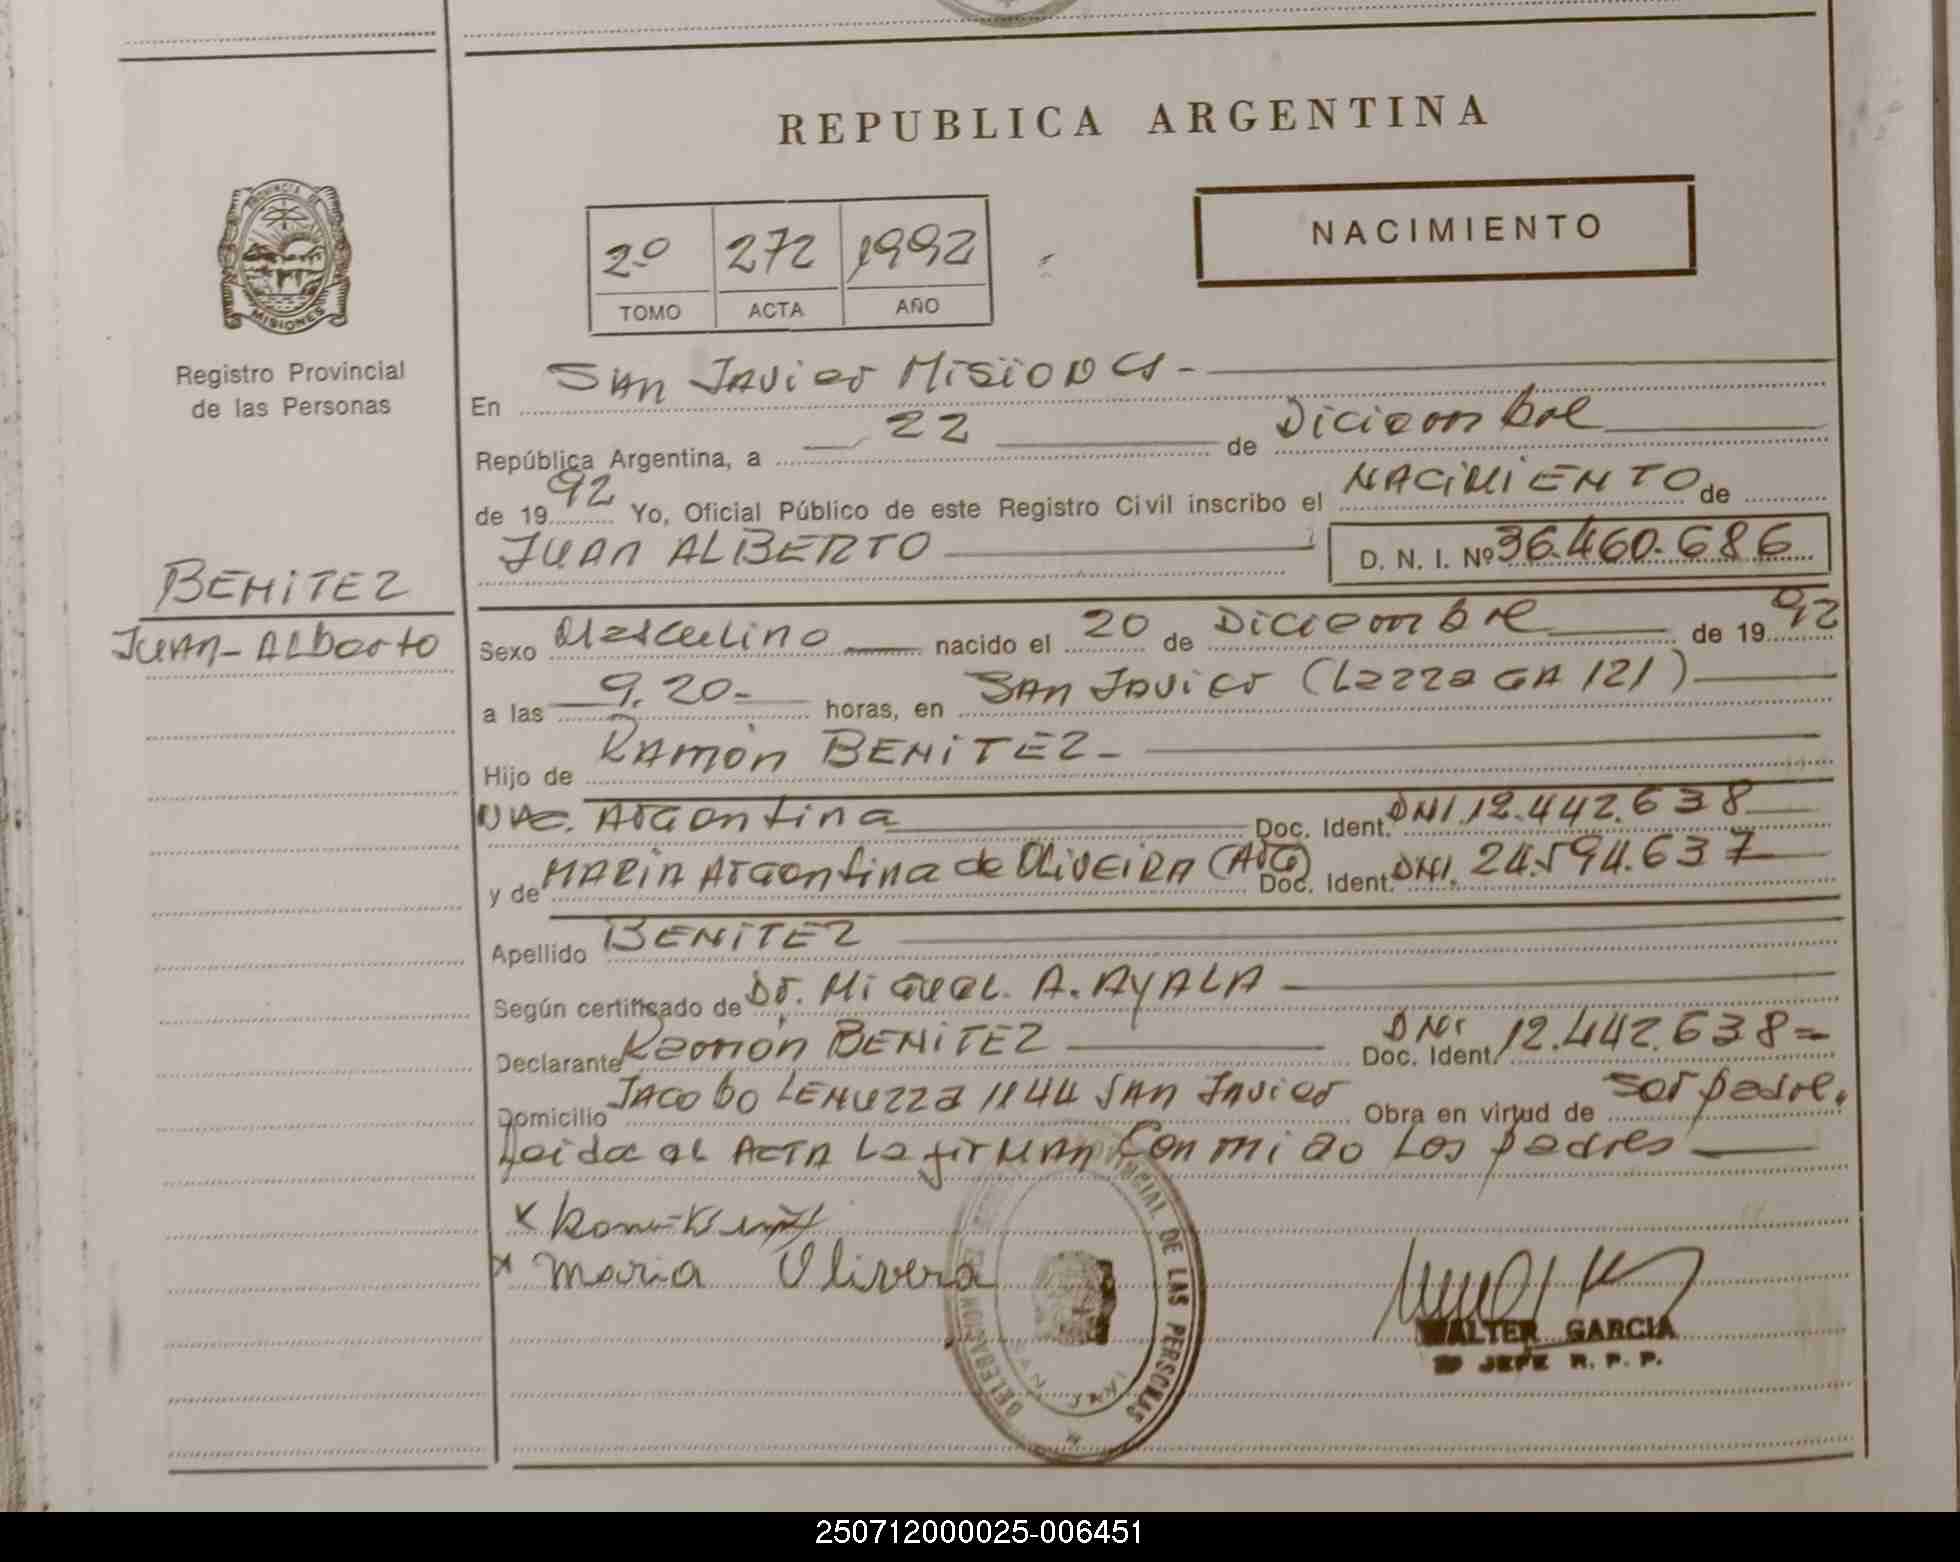 REPUBLICA ARGENTINA
PROVINCIA DE
MISIONES
Registro Provincial
de las Personas
2º 272 1992
TOMO ACTA AÑO
NACIMIENTO
En San Javier Misiones -
República Argentina, a 22 de Diciembre
de 1992 Yo, Oficial Público de este Registro Civil inscribo el NACIMIENTO de
JUAN ALBERTO D. N. I. Nº 36.460.686
BENITEZ
Juan-Alberto
Sexo Masculino nacido el 20 de Diciembre de 1992
a las 9.20- horas, en San Javier (Lezzaga 121)
Hijo de Ramón BENITEZ-
Nac. Argentina Doc. Ident. DNI. 12.442.638
y de MARIA Argentina de OLIVEIRA (Arg) Doc. Ident. DNI. 24.594.637
Apellido BENITEZ
Según certificado de Dr. Miguel. A. AYALA
Declarante Ramón BENITEZ Doc. Ident. DNI 12.442.638=
Domicilio Jacobo 1144 San Javier Obra en virtud de ser padre.
Leida el ACTA la firman Conmigo Los padres
x
x Maria Olivera
DE LAS PERSONAS
WALTER GARCIA
JEFE R. P. P.
250712000025-006451